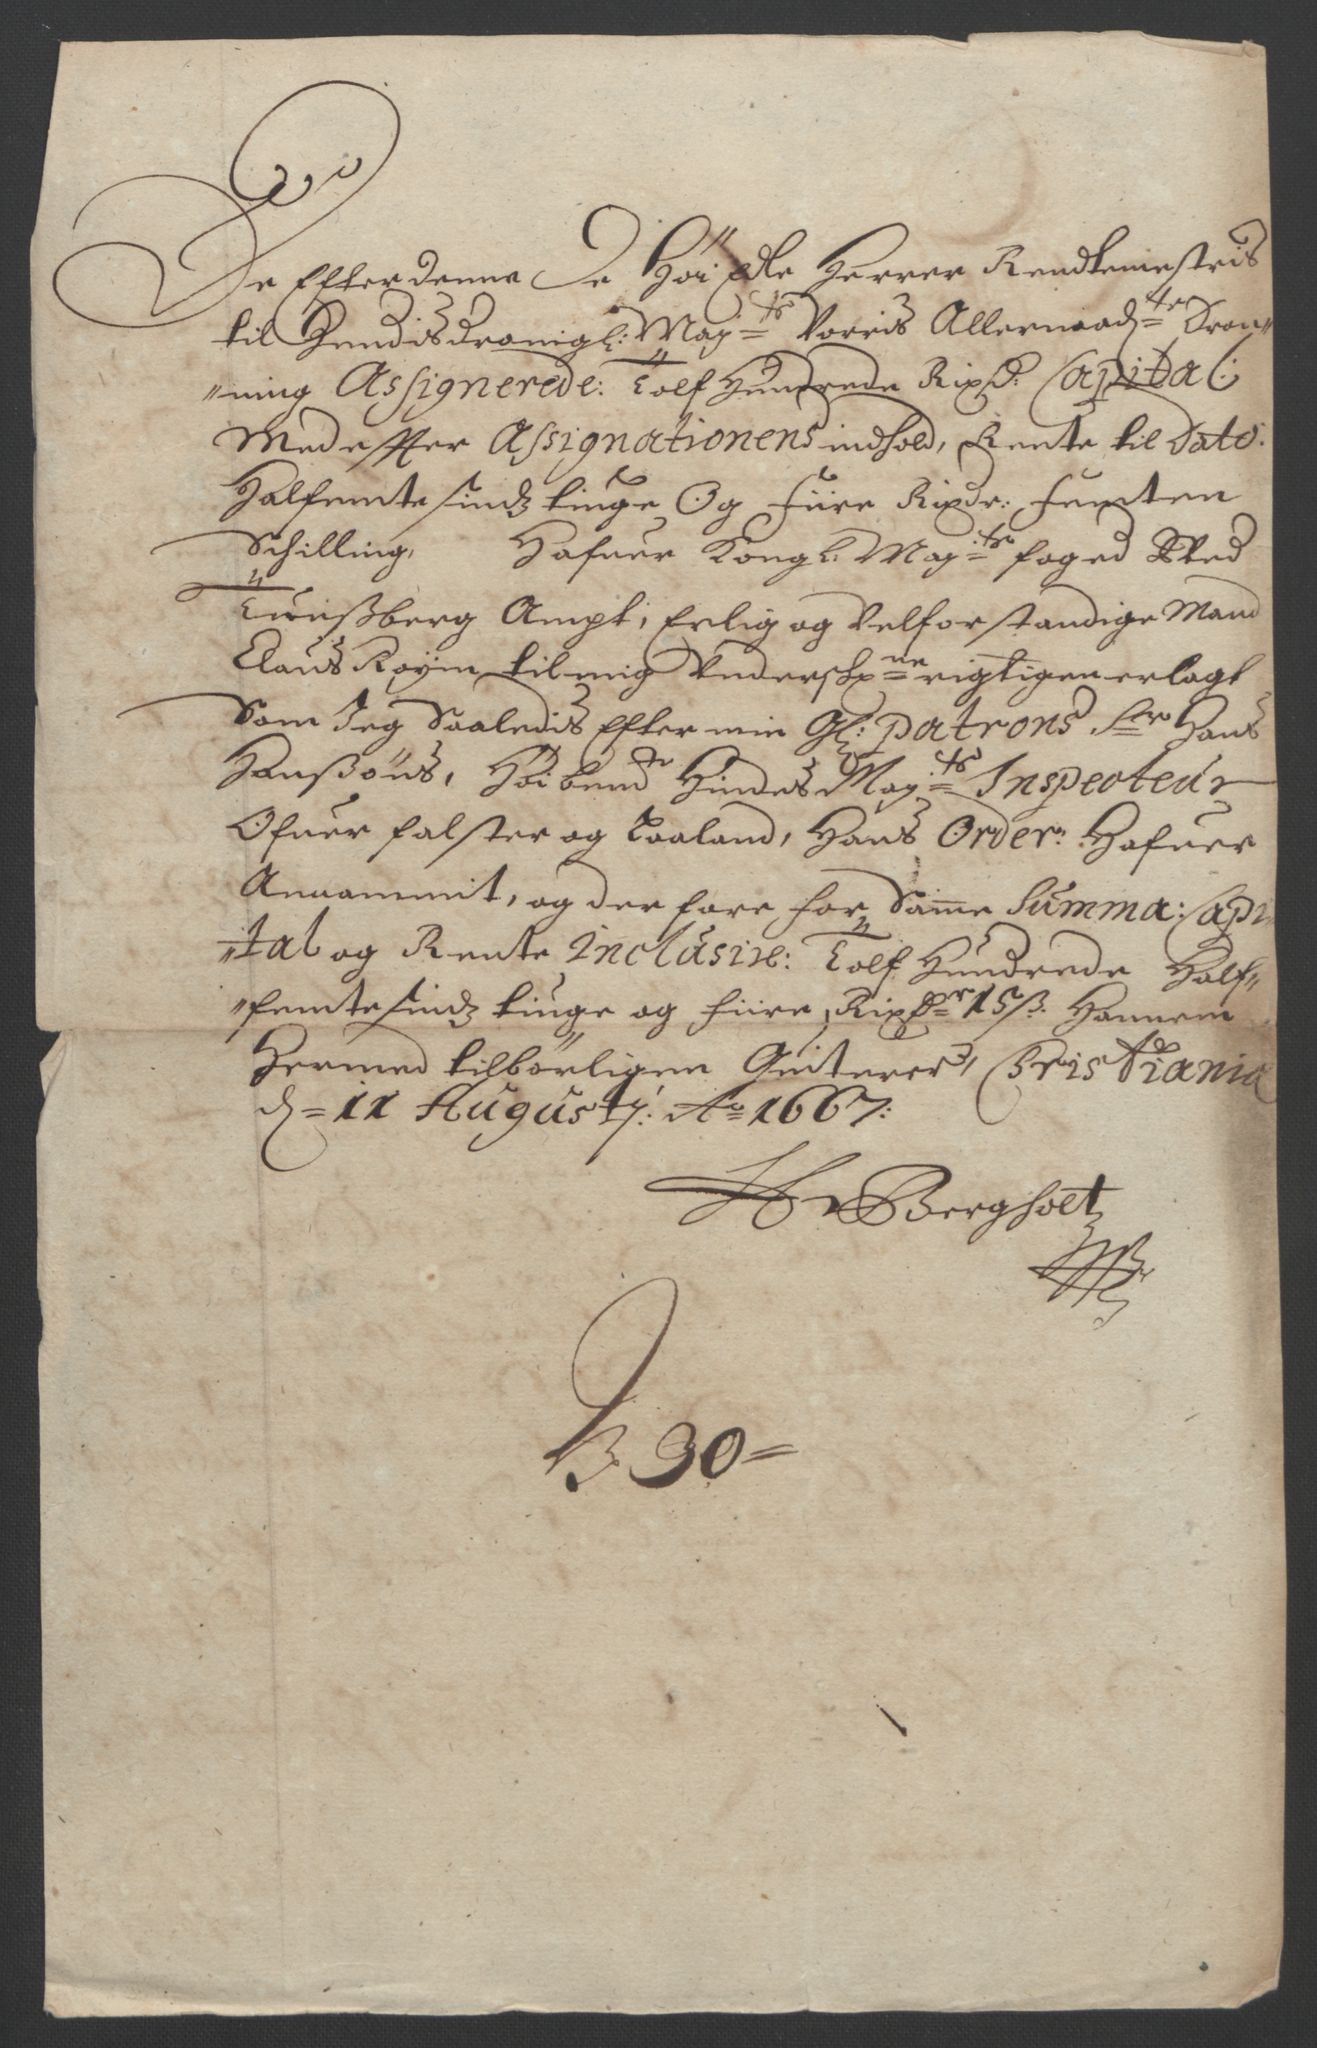 De Effter denne De Höi Edle Herrer Rendtemestris
til Hendis Dronigl: May:ts Vorris Allernaad:te Dron„
„ning Assignerede: Tolf Hundrede Rixd: Capital:
Med effter Assignationens indhold, Rente til Dato:
Halfemtesindz tiuge Og fiire Rixdr: femten
Schilling, Hafuer Kongl: May:ts foged Ved
Tunßberg Ampt, Erlig og Velforstandige Mand
Claus Røym til mig Underschr:ne rigtigen erlagt
Som Jeg Saaledis Efter min Gl: patrons Sr Hans
Hanßöns, Höibemte Hindes May:ts Inspecteur
Ofuer falster og Laaland, Hans Order: Hafuer
Anaammit, og der fore for Samme Summa: Capi„
„tal og Rente Inclusive: Tolf Hundrede Half„
„femtesindz tiuge og fiire Rixdr 15 ß. Hannem
Hermed tilbörligen Quiterer, Cristiania
d= 11 Augustj: Ao 1667:
H v Bergholt
30=